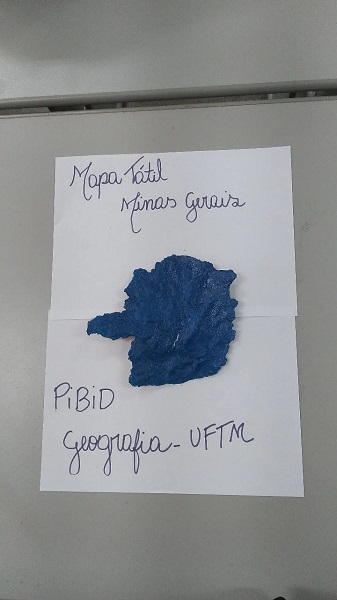 Mapa Tátil
Minas Gerais
PiBiD
Geografia - UFTM